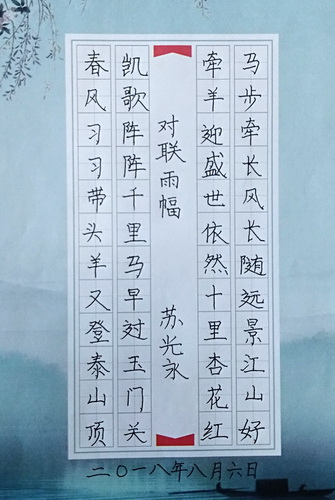 马步牵长风长随远景江山好
牵羊迎盛世依然十里杏花红
对联雨幅
苏光永
凯歌阵阵千里马早过玉门关
春风习习带头羊又登泰山顶
二〇一八年八月六日